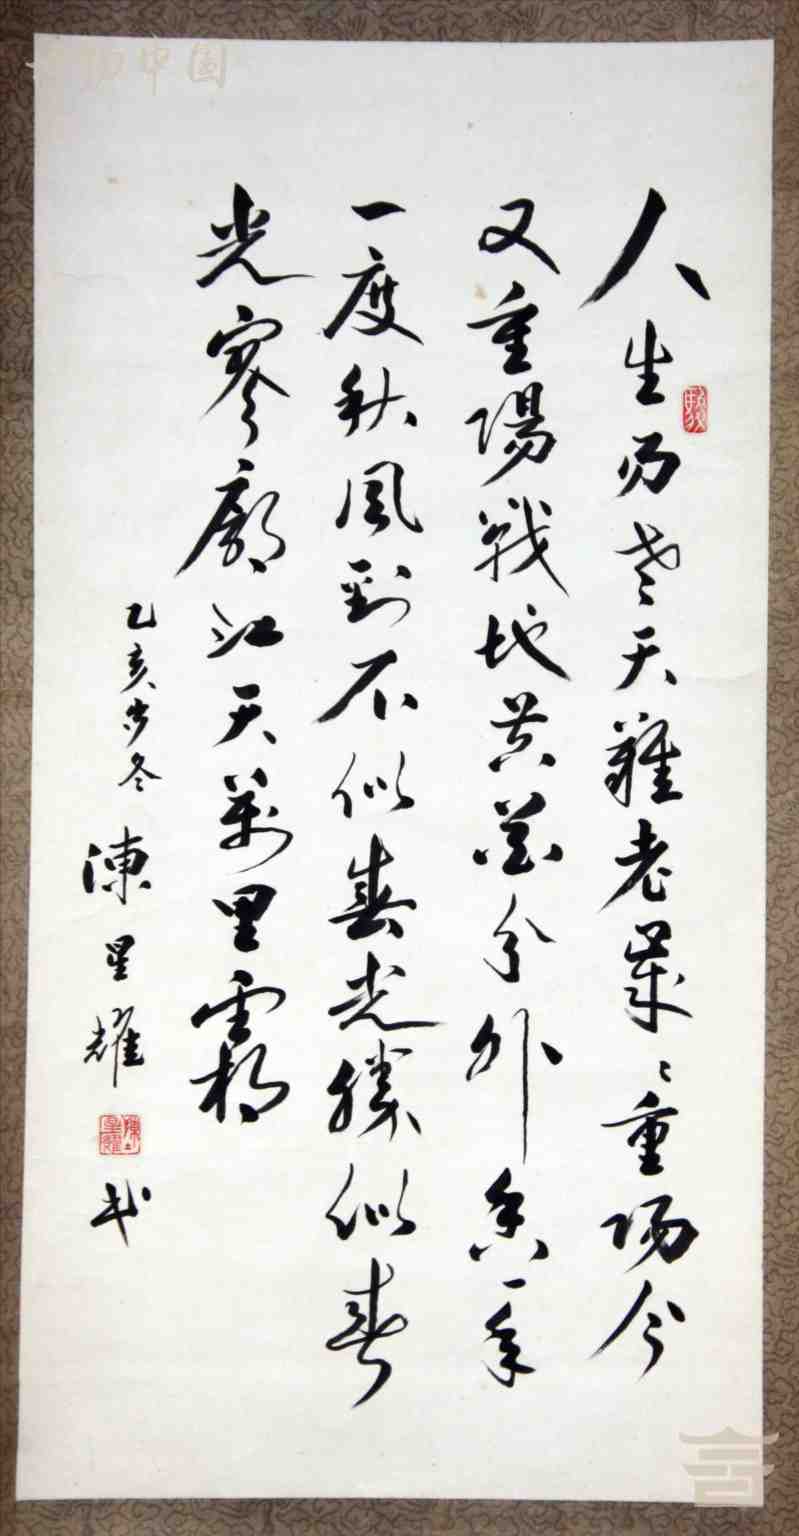 人生易老天難老歲〻重陽今
又重陽戰地黃花分外香一年
一度秋風勁不似春光勝似春
光寥廓江天萬里霜
乙亥岁冬
陳星耀
陳星耀
中国